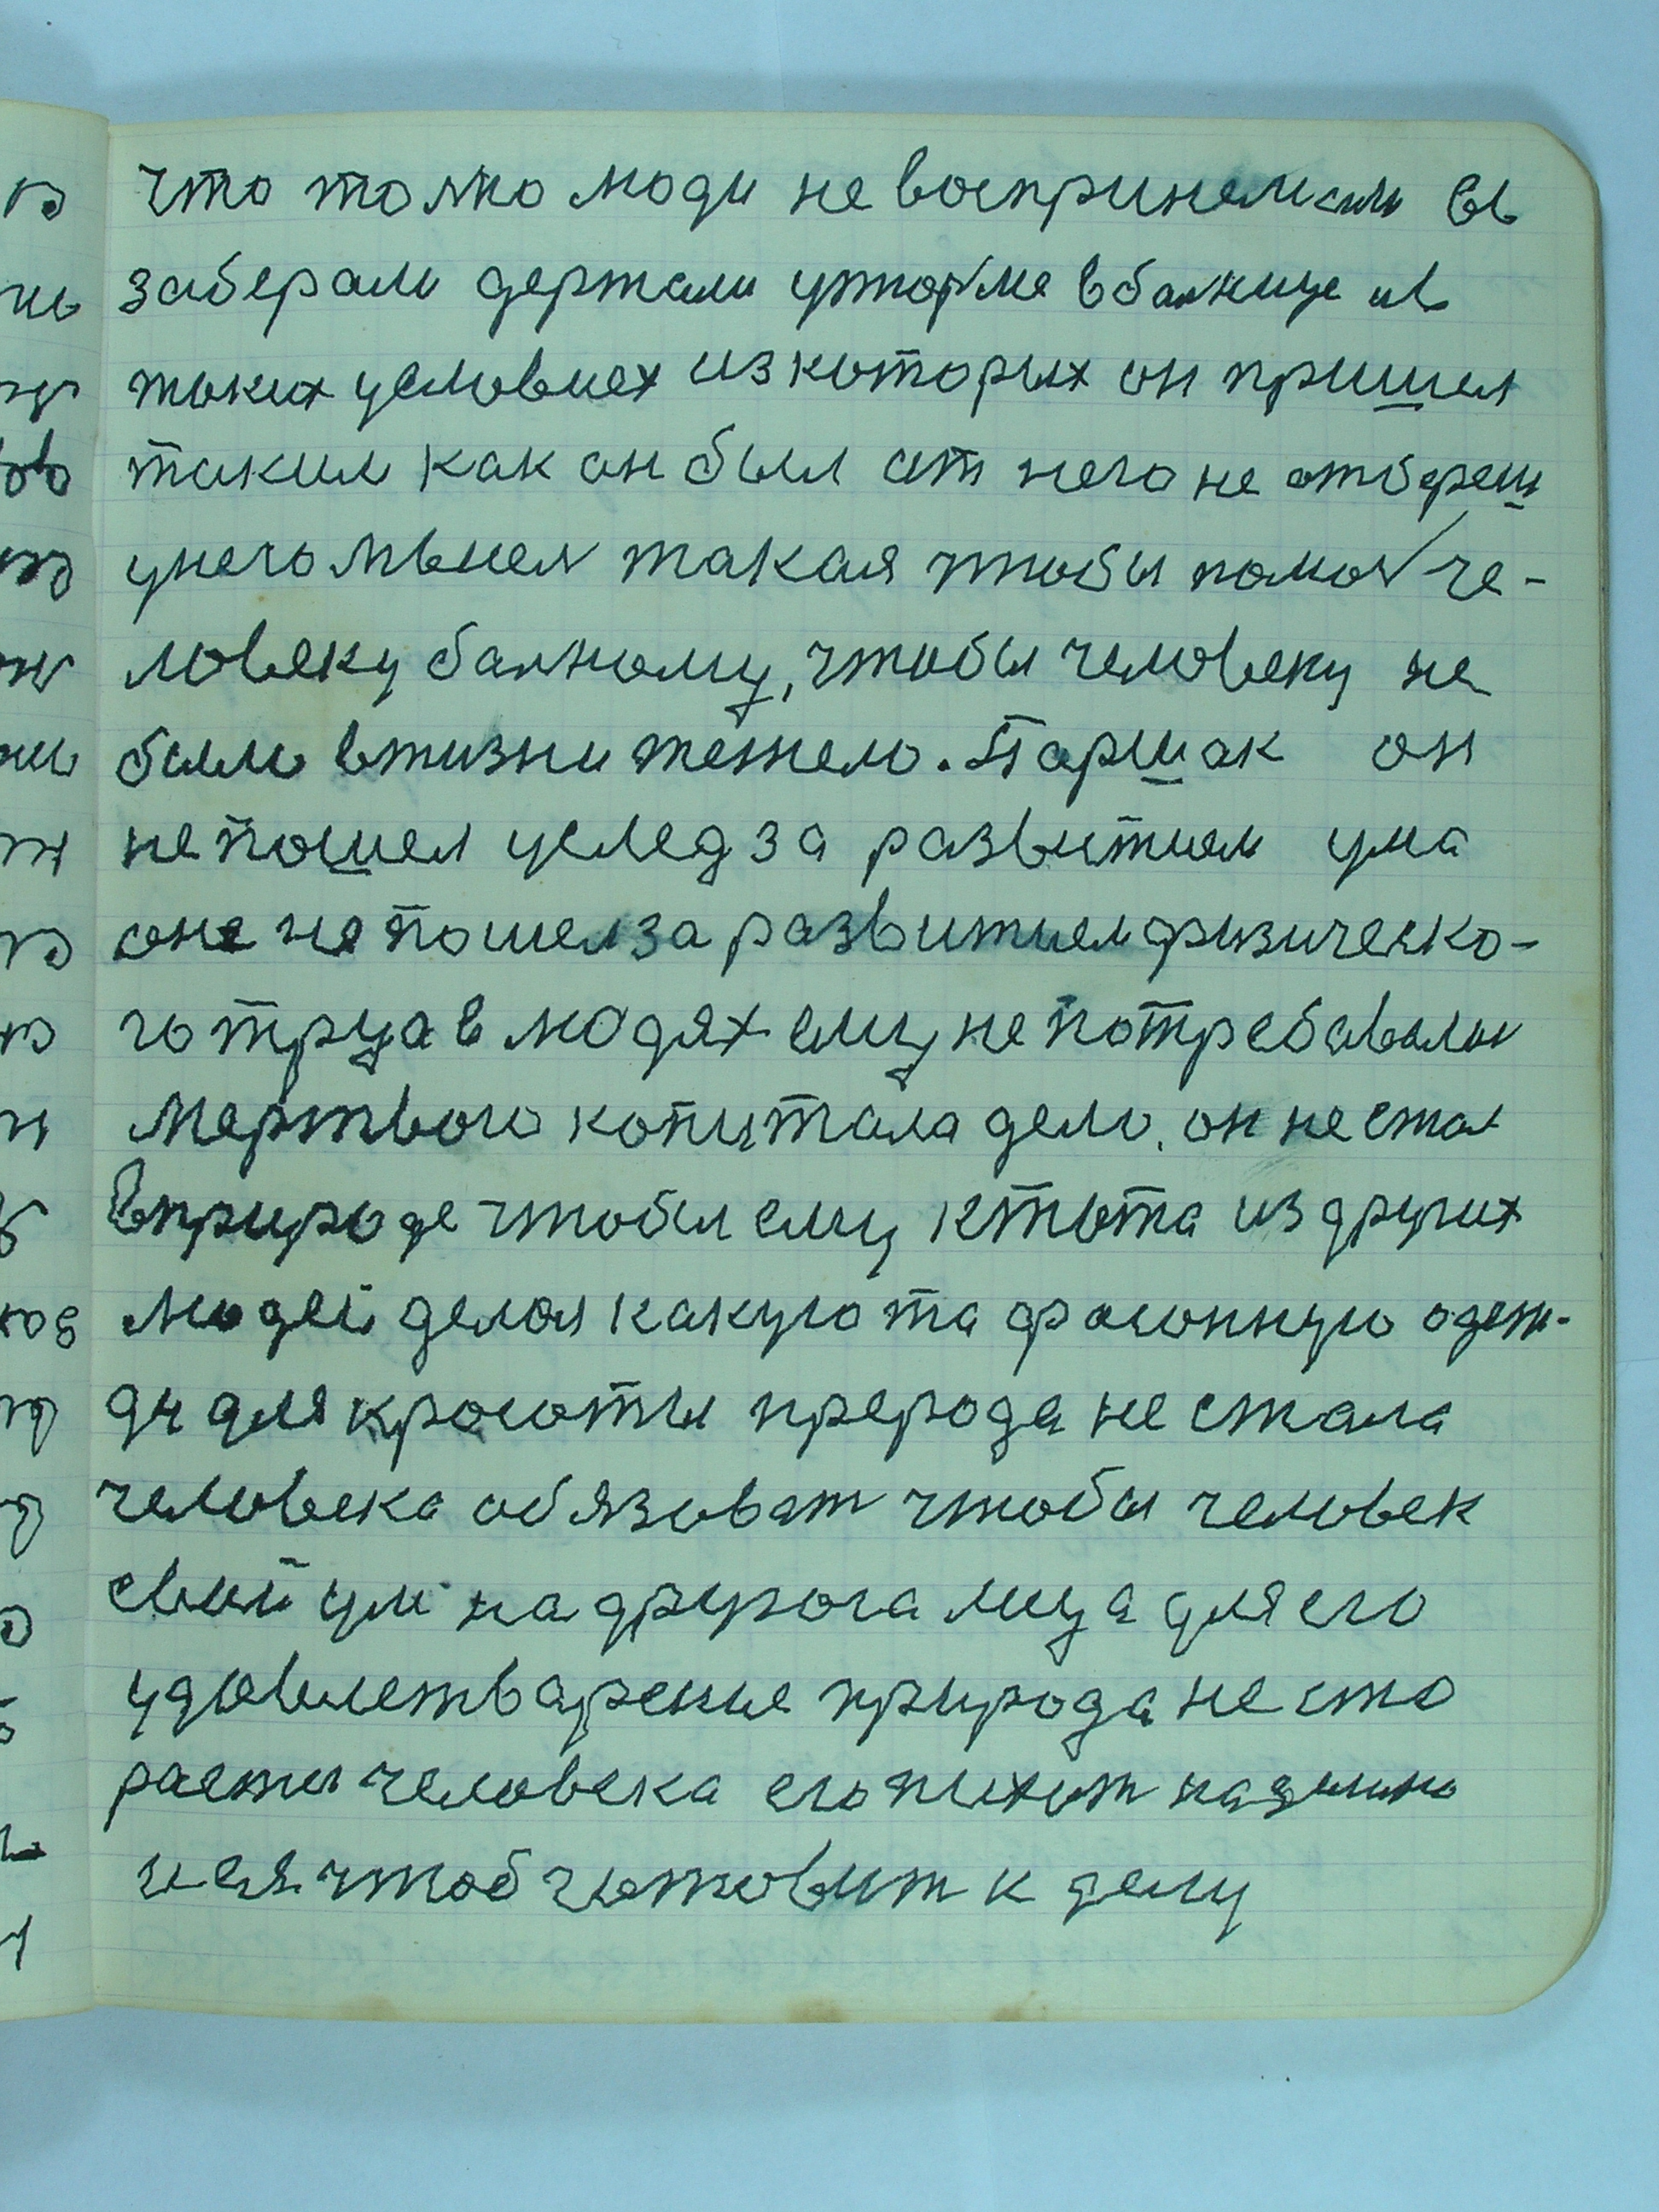 что толко люди не воспринемали ев
заберали держали утюрме в балнице ив
таких условиех из которых он пришел
таким как он был ат него не отбереш
унего мыслея такая чтобы помоч че-
ловеку балному, чтобы человеку не
было в жизни тежело. Паршак он
непошел услед за развитием ума
оне не пошел за развитием физическо-
го труда в людях ему не потребавалы
мертвого копитала дело. он не стал
в природе чтобы ему ктота из других
людей делал какую та фасонную одеж-
ду для красоты прерода не стала
человека обязоват чтобы человек
свой ум на другога лица для его
удовлетварение природа не сто
расты человека его пихит
чтоб готовит к делу